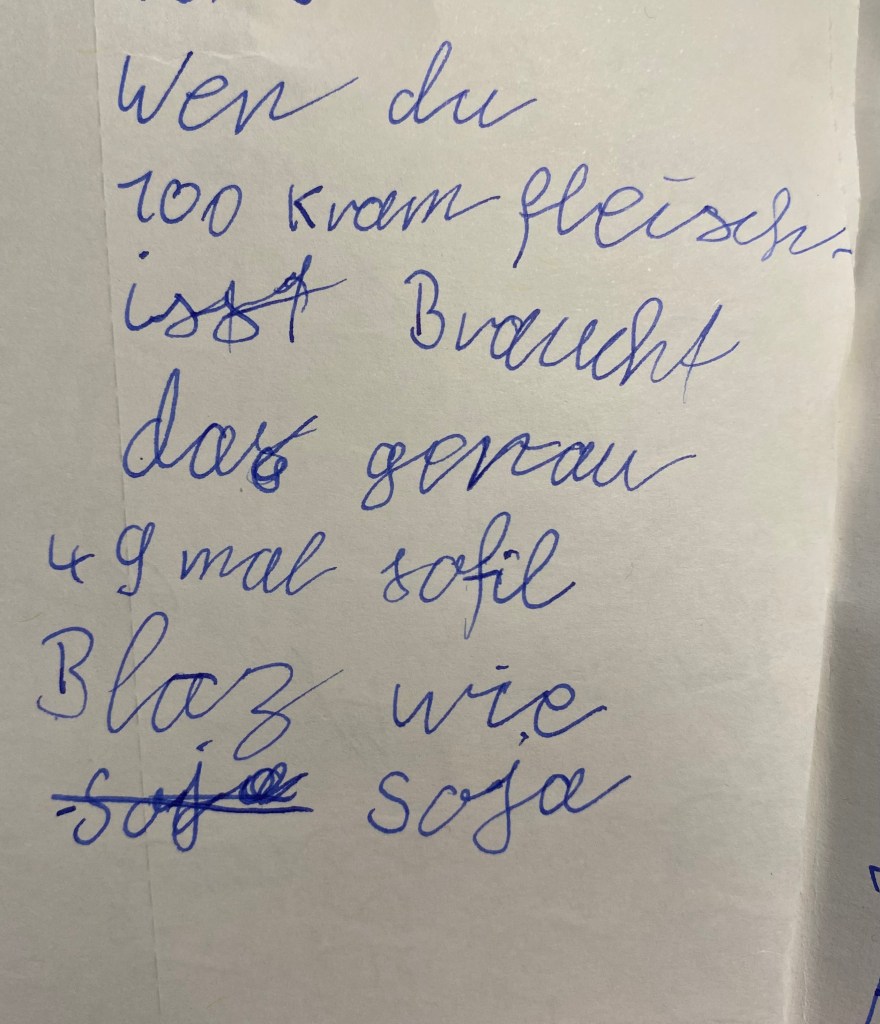 Wen du
100 Kram fleisch
isst Braucht
das genau
49 mal sofil
Blaz wie
soja soja